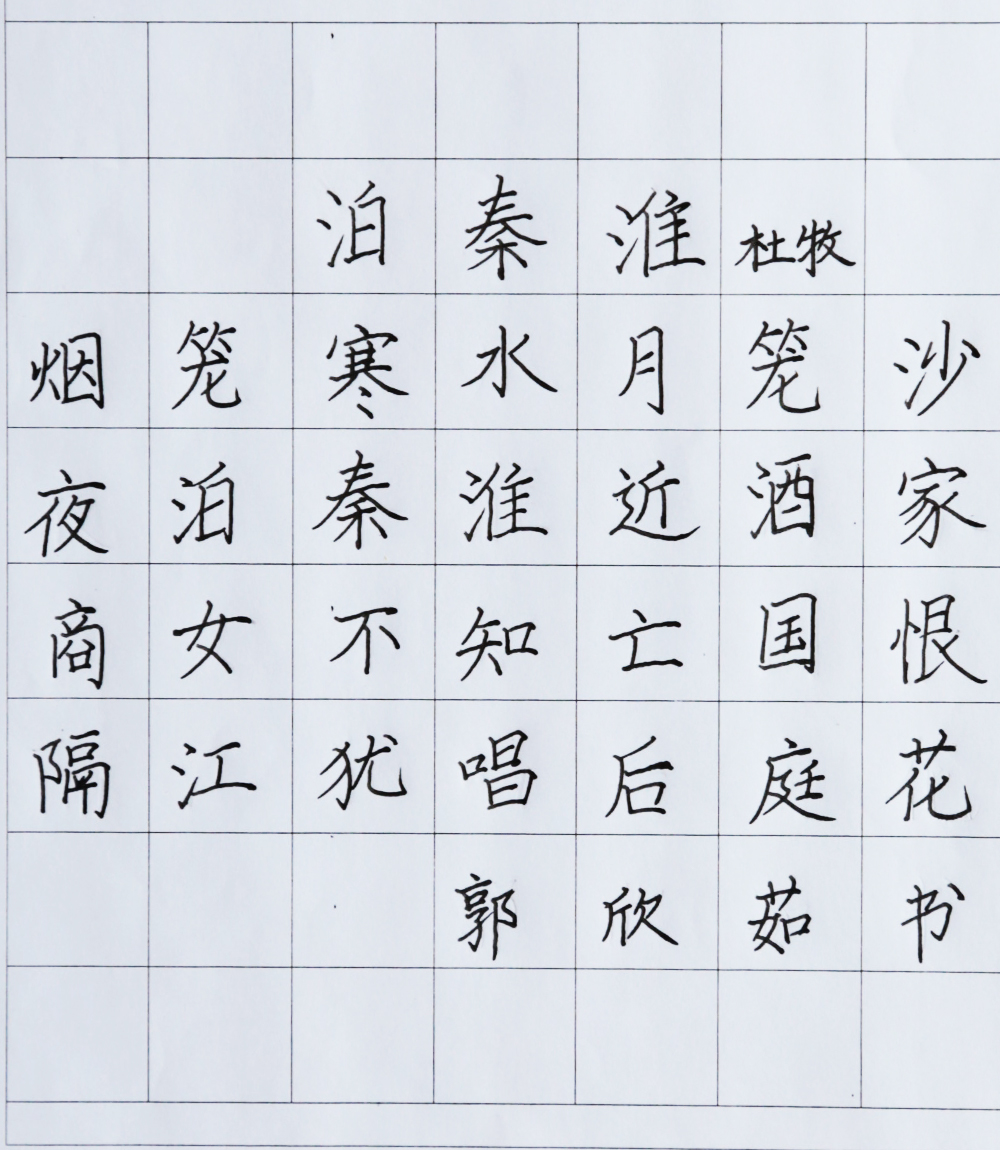 泊秦淮 杜牧
烟笼寒水月笼沙
夜泊秦淮近酒家
商女不知亡国恨
隔江犹唱后庭花
郭欣茹书